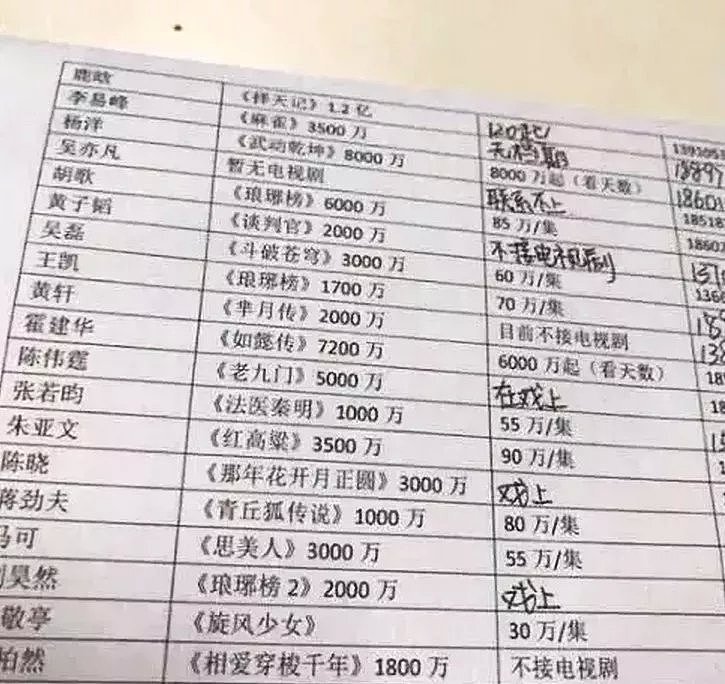 鹿晗 《择天记》1.2 亿 120起
李易峰 《麻雀》3500 万 无档期 18897
杨洋 《武动乾坤》8000 万 8000 万起（看天数） 18601
吴亦凡 暂无电视剧 联系不上 18518
胡歌 《琅琊榜》6000 万 85 万/集 1860
黄子韬 《谈判官》2000 万 不接电视剧
吴磊 《斗破苍穹》3000 万 60 万/集
王凯 《琅琊榜》1700 万 70 万/集
黄轩 《芈月传》2000 万 目前不接电视剧
霍建华 《如懿传》7200 万 6000 万起（看天数）
陈伟霆 《老九门》5000 万 在戏上
张若昀 《法医秦明》1000 万 55 万/集
朱亚文 《红高粱》3500 万 90 万/集
陈晓 《那年花开月正圆》3000 万 戏上
蒋劲夫 《青丘狐传说》1000 万 80 万/集
马可 《思美人》3000 万 55 万/集
昊然 《琅琊榜 2》2000 万 戏上
敬亭 《旋风少女》 30 万/集
柏然 《相爱穿梭千年》1800 万 不接电视剧